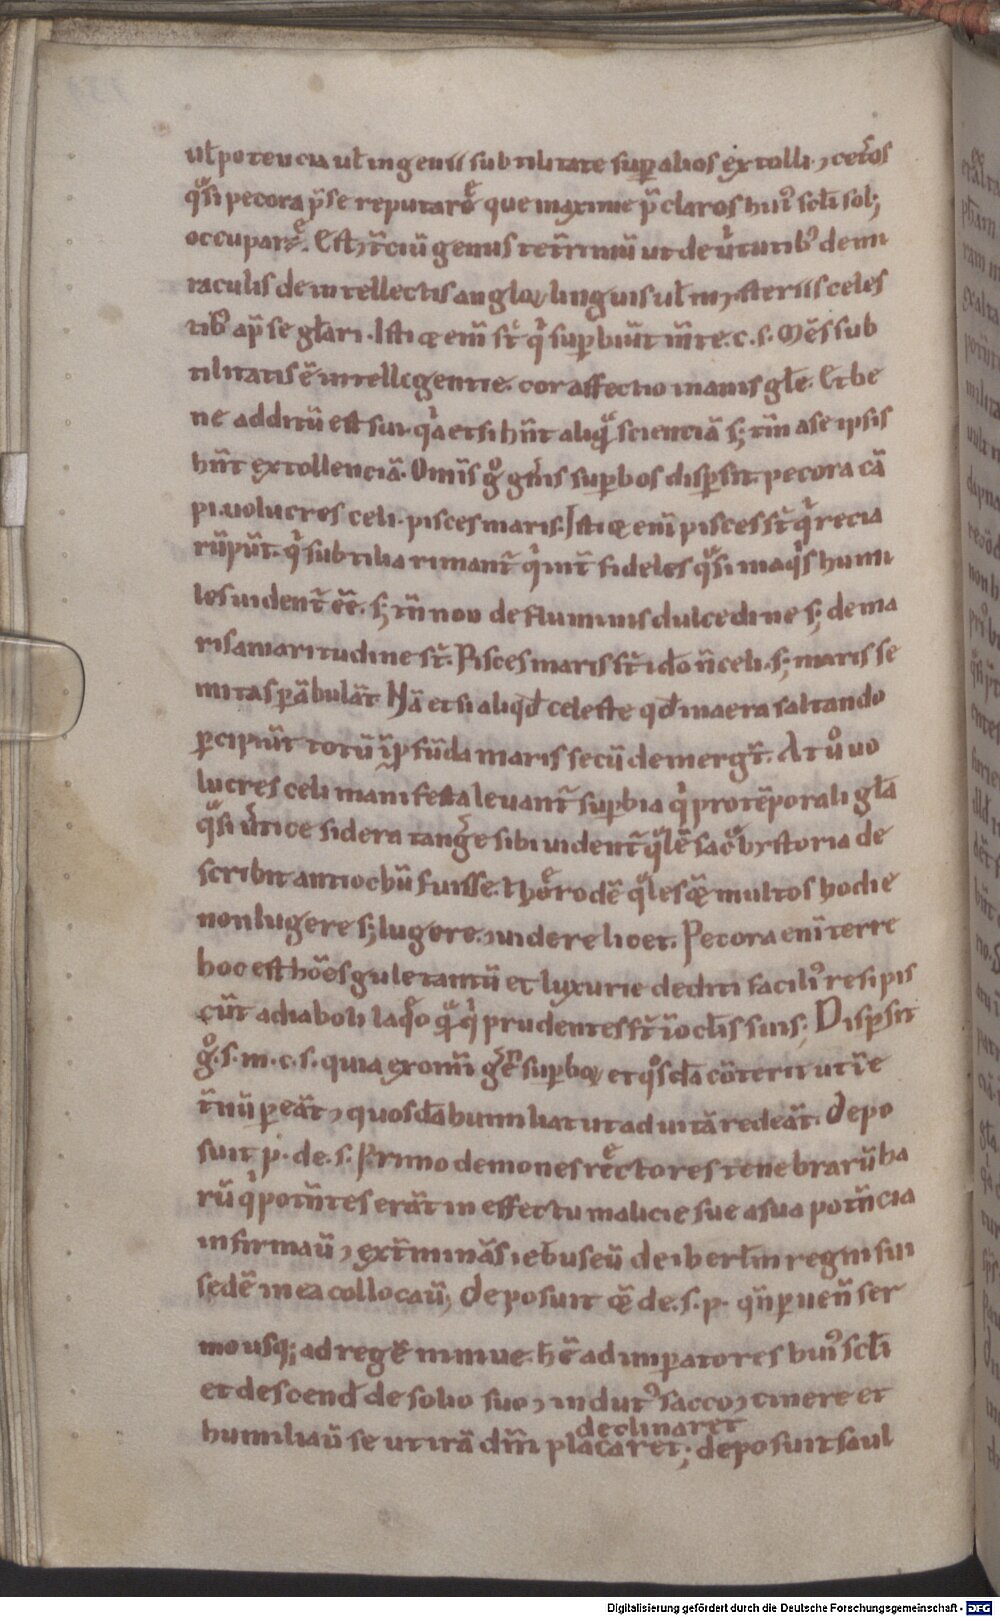 ul̄ potencia ul̄ ingenii subtilitate suꝑ alios extolli· ⁊ cet̄os
qᵃsi pecora p̄ se reputare· que maxime p̄claros huiꝰ scl̄i sol;
occupare. Est ⁊ t̄ciū genus tet̄rimū ut de ūtutibꝰ de mi
raculis de intellectis angloꝝ linguis ul̄ mysteriis celes
tibꝰ ap̄ se gl̄ari. Isti q̨ eni᷒ st̄ qⁱ suꝑbiūt m̄te.c.s. Mēs sub
tilitatis ē intelligentie. cor affectio inanis gl̄e. Et be
ne additū est sui. qⁱa etsi hn̄t aliqᵃ scienciā s; tm̄ a se ipsis
hn̄t extollenciā. Omīs g̊ gn̄is suꝑbos disꝑsit. pecora cā
pi. uolucres celi. pisces maris. Isti q̨ eni᷒ pisces st̄ qⁱ recia
rūpūt. qⁱ subtilia rimant̄ qⁱ int̄ fideles qᵃsi maqⁱs humi
les uident̄ ēē. s; tn̄ non de fluminis dulcedine s; de ma
ris amaritudine st̄. Pisces maris st̄ ido n̄ celi. s; maris se
mitas ꝑābulāt. Nā etsi aliqd̄ celeste qd̄ in aera saltando
ꝑcipiūt totū ī ꝓfūda maris secū demergt̄. At ů uo
lucres celi manifesta leuant̄ suꝑbia qⁱ pro tēporali gl̄a
qᵃsi ūtice sidera tangē sibi uident̄ qᵃlē sacᵃ hystoria de
scribit antiochū fuisse. ł herodē qᵃles q̨ multos hodie
non lugere s; lugere. ⁊ uidere licet. Pecora eni᷒ terre
hoc est hōēs gule tantū et luxurie dediti faciliꝰ resipis
cūt a diaboli laqᵒo qᵃ qⁱ prudentes st̄ ī oclīs suis; Disꝑsit
g̊.s.m.c.s. quia ex omn̄i gn̄e suꝑboꝝ et qᵒsdā cōterit ut ī e
t̄nū ꝑeāt ⁊ quosdā humiliat ut ad uitā redeāt. Depo
suit p. de.s. Primo demones rectores tenebrarū ha
rū qⁱ potn̄tes erāt in effectu malicie sue a sua potn̄cia
infirmaū ⁊ ext̄minās iebuseū de iherl̄m regni sui
sedē in ea collocaū; Deposuit q̨ de.s.p. qn̄ ꝑuen̄ ser
mo usq; ad regē niniue. hē ad imperatores huiꝰ scl̄i
et descend̄ de solio suo ⁊ indutꝰ sacco ⁊ cinere et
declinaret
humiliaū se ut irā dn̄i placaret; deposuit saul
Digitalisierung gefördert durch die Deutsche Forschungsgemeinschaft - DFG